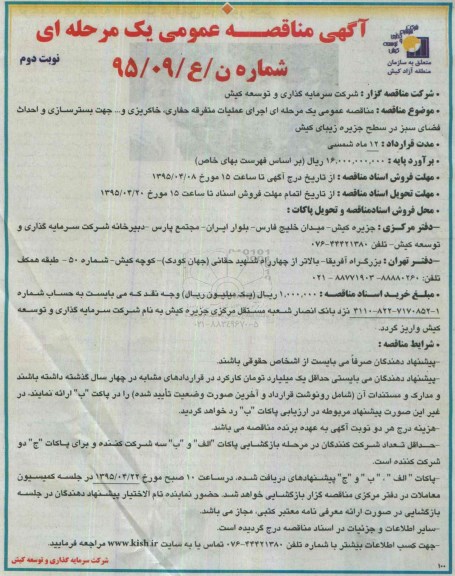 آگهی مناقصه عمومی یک مرحله ای
نوبت دوم
شماره ن/ع/۹۵/۰۹
متعلق به سازمان
منطقه آزاد کیش
• شرکت مناقصه گزار : شرکت سرمایه گذاری و توسعه کیش
• موضوع مناقصه : مناقصه عمومی یک مرحله ای اجرای عملیات متفرقه حفاری، خاکریزی و... جهت بسترسازی و احداث
فضای سبز در سطح جزیره زیبای کیش
• مدت قرارداد : ۱۲ ماه شمسی
• برآورد پایه : ۱۶,۰۰۰,۰۰۰,۰۰۰ ریال (بر اساس فهرست بهای خاص)
• مهلت فروش اسناد مناقصه : از تاریخ درج آگهی تا ساعت ۱۵ مورخ ۱۳۹۵/۰۴/۰۸
• مهلت تحویل اسناد مناقصه : از تاریخ اتمام مهلت فروش اسناد تا ساعت ۱۵ مورخ ۱۳۹۵/۰۴/۲۰
• محل فروش اسناد مناقصه و تحویل پاکات :
–دفتر مرکزی : جزیره کیش- میدان خلیج فارس- بلوار ایران- مجتمع پارس -دبیرخانه شرکت سرمایه گذاری و
توسعه کیش- تلفن ۴۴۴۲۱۳۸۰-۰۷۶
–دفتر تهران : بزرگراه آفریقا- بالاتر از چهارراه شهید حقانی (جهان کودک)- کوچه کیش- شماره ۵۰ - طبقه همکف
تلفن: ۸۸۸۸۰۲۶۰- ۸۸۷۷۱۹۰۳ - ۰۲۱
• مبلغ خرید اسناد مناقصه : ۱,۰۰۰,۰۰۰ ریال (یک میلیون ریال) وجه نقد که می بایست به حساب شماره
۱-۷۱۷۰۸۵۲-۸۲۲-۳۱۱۰ نزد بانک انصار شعبه مستقل مرکزی جزیره کیش به نام شرکت سرمایه گذاری و توسعه
کیش واریز گردد.
• شرایط مناقصه :
–پیشنهاد دهندگان صرفاً می بایست از اشخاص حقوقی باشند.
–پیشنهاد دهندگان می بایستی حداقل یک میلیارد تومان کارکرد در قراردادهای مشابه در چهار سال گذشته داشته باشند
و مدارک و مستندات آن (شامل رونوشت قرارداد و آخرین صورت وضعیت تأیید شده) را در پاکت "ب" ارائه نمایند، در
غیر این صورت پیشنهاد مربوطه در ارزیابی پاکات "ب" رد خواهد گردید.
–هزینه درج هر دو نوبت آگهی به عهده برنده مناقصه می باشد.
–حداقل تعداد شرکت کنندگان در مرحله بازگشایی پاکات "الف" و "ب" سه شرکت کننده و برای پاکات "ج" دو
شرکت کننده است.
–پاکات "الف" ، "ب" و "ج" پیشنهادهای دریافت شده، در ساعت ۱۰ صبح مورخ ۱۳۹۵/۰۴/۲۲ در جلسه کمیسیون
معاملات در دفتر مرکزی مناقصه گزار بازگشایی خواهد شد. حضور نماینده تام الاختیار پیشنهاد دهندگان در جلسه
بازگشایی در صورت ارائه معرفی نامه معتبر کتبی، مجاز می باشد.
–سایر اطلاعات و جزئیات در اسناد مناقصه درج گردیده است.
–جهت کسب اطلاعات بیشتر با شماره تلفن ۴۴۴۲۱۳۸۰-۰۷۶ تماس یا به سایت www.kish.ir مراجعه فرمایید.
شرکت سرمایه گذاری و توسعه کیش
۱۰۰